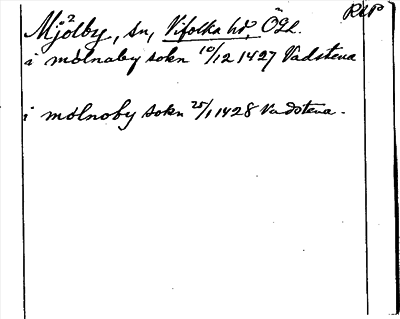 RAP
Mjölby, sn, Vifolka hd, Ögl.
i molnaby sokn 10/12 1427 Vadstena
i molnoby sokn 25/1 1428 Vadstena.